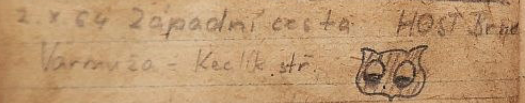 2 x 64 Západní cesta HOST Brno
Varmuža - Keclík stř.